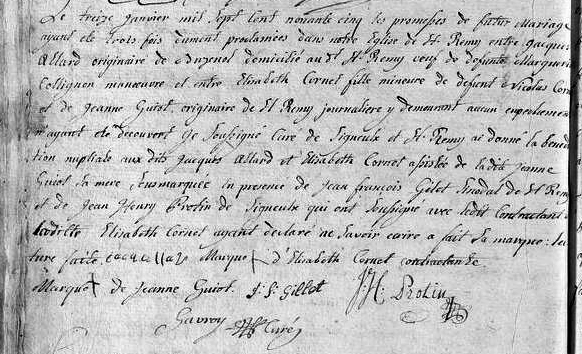 Le treize janvier mil sept cent nonante cinq les promesses de futur mariage
ayant été trois fois dument proclamées dans notre Eglise de St Remy entre jacques
Allard originaire de domicilié au dt St Remy veuf de defunte Marguerite
Collignon manœuvre et entre Elisabeth Cornet fille mineure de defunt Nicolas Corn
et de Jeanne Guiot originaire de St Remy journaliere y demeurant aucun empechemen
ayant été decouvert Je soussigné Curé de Signeulx et St Remy ai donné la bened
tion nuptiale aux dits jacques Allard et Elisabeth Cornet assistée de ladite jeanne
Guiot sa mere soumarquée in presence de jean françois Gillot sinodal de St Remy
et de Jean Henry Protin de Signeulx qui ont soussigné avec ledit Contractant
ladite Elisabeth Cornet ayant declaré ne savoir ecrire a fait sa marque : lec
ture faite Marque d Elisabeth Cornet contractante
Marque de Jeanne Guiot. J. f. Gillot J: H: Protin
Gavroy Curé